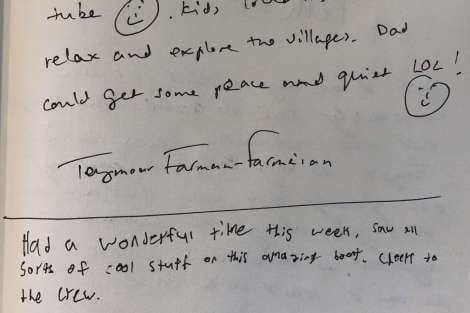 tube ☺. Kids,
relax and explore the villages. Dad
could get some peace and quiet LOL!
Teymour Farman-Farmaian
Had a wonderful time this week, saw all
sorts of cool stuff on this amazing boat. Cheers to
the crew.